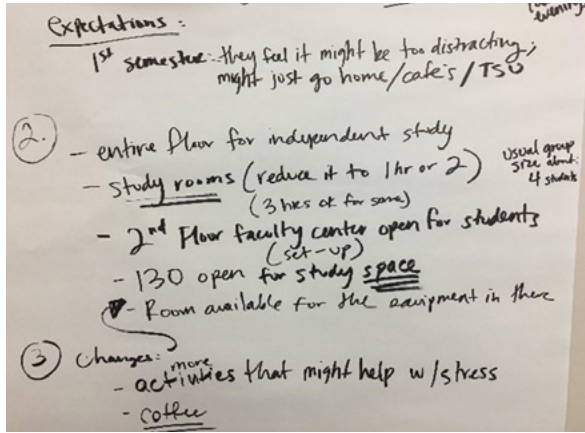 expectations:
1st semester: they feel it might be too distracting;
might just go home/cafe's/TSU
2.
- entire floor for independent study
- study rooms (reduce it to 1hr or 2)
(3 hrs ok for some)
usual group
size about:
4 students
- 2nd Floor faculty center open for students
(set-up)
- 130 open for study space
- Room available for the equipment in there
3 changes:
more
- activities that might help w/stress
- coffee
evenings